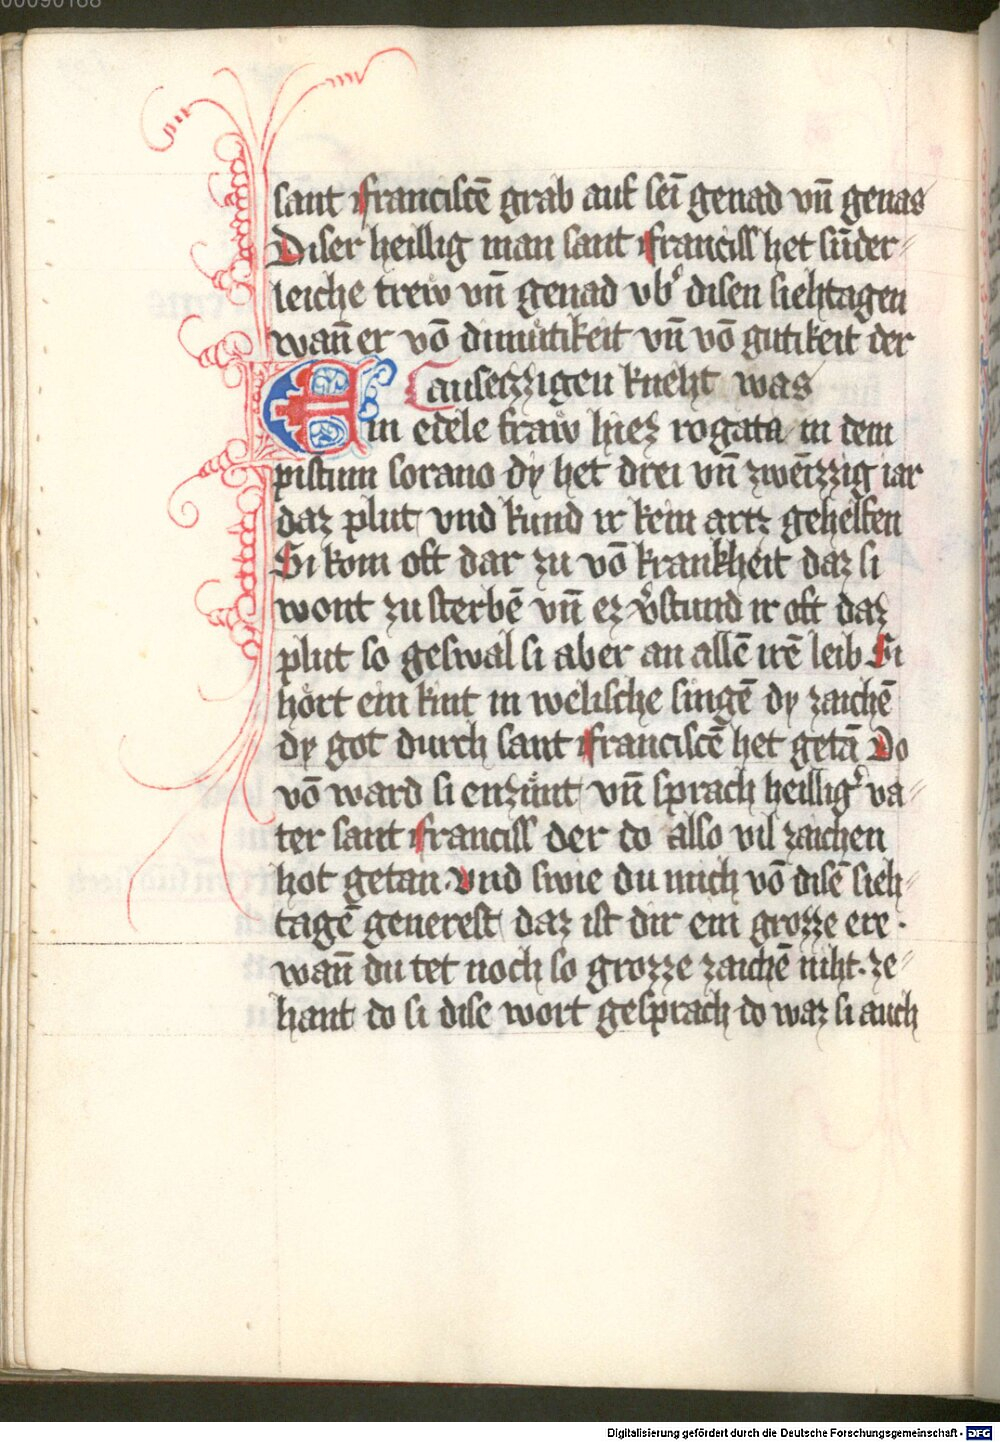 00090168
sant franciscē grab auf sei genad vn̄ genas
Diser heillig man sant franciss het sūder⸗
leiche trew vn̄ genad vbˀ disen siehtagen
wan̄ er vō dimuͤtikeit vn̄ vō gutikeit der
ausetzzigen kneht was
Ein edele fraw hiez rogata in dem
pistum sorano dy het drei vn̄ zwēizzig iar
daz plut vnd kund ir kein artz gehelfen
Si kom oft dar zu vō krankheit daz si
wont zu sterbē vn̄ ez v̾stund ir oft daz
plut so geswal si aber an allē irē leib Si
hoͤrt ein kint in welische singē dy zaichē
dy got durch sant franciscē het getā Do
vō ward si enzuͤnt vn̄ sprach heilligˀ va⸗
ter sant franciss der do also vil zaichen
hot getan · vnd swie du mich vō disē sieh⸗
tagē generest daz ist dir ein grozze ere ·
wan̄ du tet noch so grozze zaichē niht · ze⸗
hant do si dise wort gesprach do waz si auch
Digitalisierung gefördert durch die Deutsche Forschungsgemeinschaft - DFG